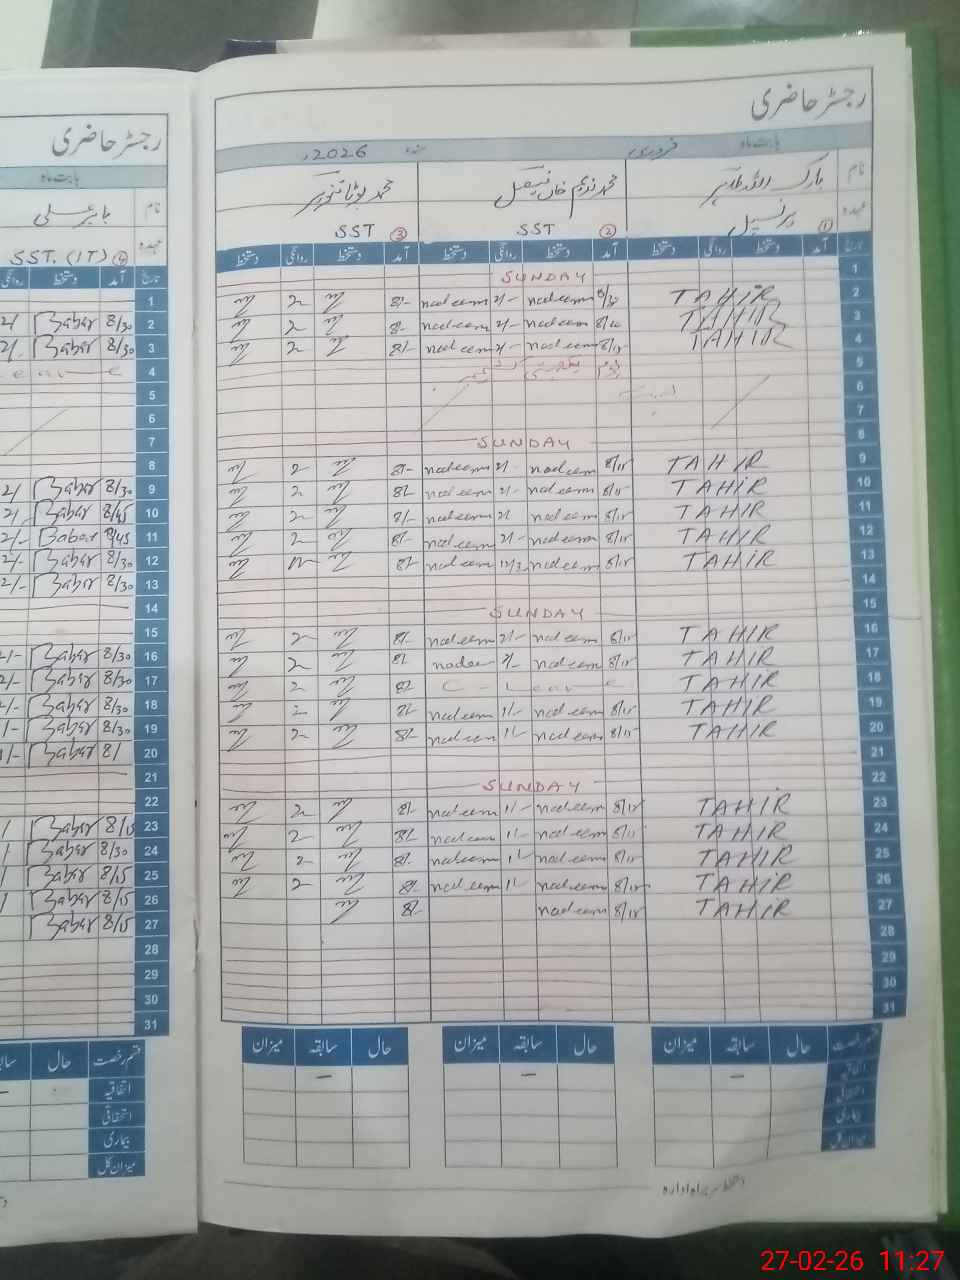 رجسٹر حاضری
بابت ماہ فروری سنہ 2026ء
نام مارک محمد ندیم خان محمد
عہدہ پرنسپل ① SST ② SST ③
تاریخ آمد دستخط روانگی دستخط آمد دستخط روانگی دستخط آمد دستخط روانگی دستخط
1 SUNDAY
2 TAHIR 8/30 nadeem 2/- nadeem 8/- 2
3 TAHIR 8/10 nadeem 2/- nadeem 8/- 2
4 TAHIR 8/15 nadeem 2/- nadeem 8/- 2
5 یوم یکجہتی کشمیر
6
7
8 SUNDAY
9 TAHIR 8/15 nadeem 2/- nadeem 8/- 2
10 TAHIR 8/15 nadeem 2/- nadeem 8/- 2
11 TAHIR 8/15 nadeem 2/- nadeem 8/- 2
12 TAHIR 8/15 nadeem 2/- nadeem 8/- 2
13 TAHIR 8/15 nadeem 12/30 nadeem 8/-
14
15 SUNDAY
16 TAHIR 8/15 nadeem 2/- nadeem 8/- 2
17 TAHIR 8/15 nadeem 2/- nadeem 8/- 2
18 TAHIR C - Leave 8/- 2
19 TAHIR 8/15 nadeem 1/- nadeem 8/- 2
20 TAHIR 8/15 nadeem 1/- nadeem 8/- 2
21
22 SUNDAY
23 TAHIR 8/15 nadeem 1/- nadeem 8/- 2
24 TAHIR 8/15 nadeem 1/- nadeem 8/- 2
25 TAHIR 8/15 nadeem 1/- nadeem 8/- 2
26 TAHIR 8/15 nadeem 1/- nadeem 8/- 2
27 TAHIR 8/15 nadeem 8/-
28
29
30
31
قسم رخصت حال سابقہ میزان حال سابقہ میزان حال سابقہ میزان
اتفاقیہ – – –
استحقاقی
بیماری
میزان کل
دستخط سربراہ ادارہ
رجسٹر حاضری
بابت ماہ
نام بابر علی
عہدہ SST.(IT) ④
تاریخ آمد دستخط
1
2 8/30 Babar 2/
3 8/30 Babar 2/-
4 Leave
5
6
7
8
9 8/30 Babar 2/
10 8/45 Babar 2/
11 8/45 Babar 2/-
12 8/30 Babar 2/-
13 8/30 Babar 2/-
14
15
16 8/30 Babar 2/-
17 8/30 Babar 2/-
18 8/30 Babar 2/-
19 8/30 Babar 1/-
20 8/ Babar 1/-
21
22
23 8/15 Babar
24 8/30 Babar
25 8/15 Babar
26 8/15 Babar
27 8/15 Babar
28
29
30
31
قسم رخصت حال
اتفاقیہ
استحقاقی
بیماری
میزان کل
27-02-26 11:27